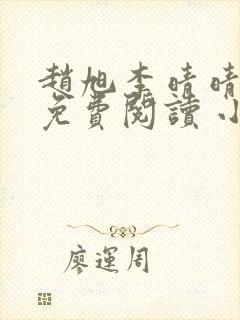 趙旭李晴晴
免費閱讀小
廖運周